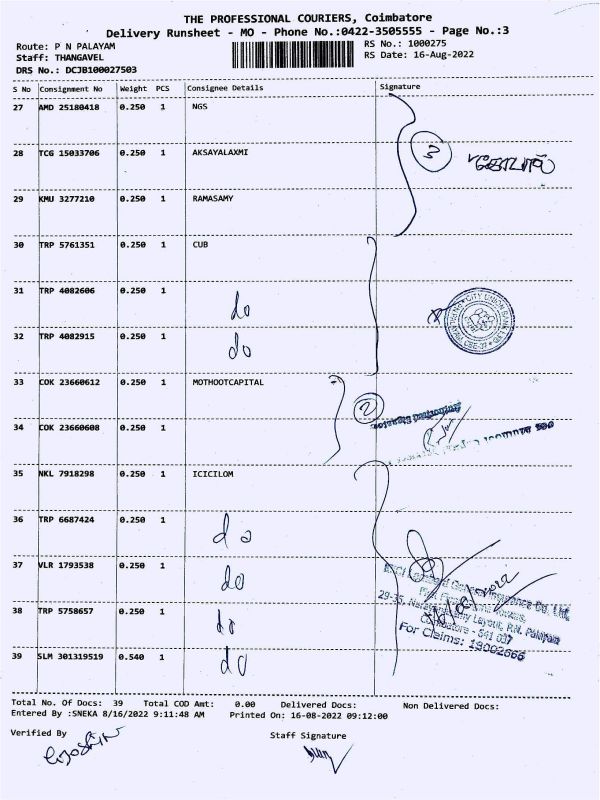 THE PROFESSIONAL COURIERS, Coimbatore
Delivery Runsheet - MO - Phone No.:0422-3505555 - Page No.:3
Route: P N PALAYAM RS No.: 1000275
Staff: THANGAVEL RS Date: 16-Aug-2022
DRS No.: DCJB100027503
S No Consignment No Weight PCS Consignee Details Signature
27 AMD 25180418 0.250 1 NGS
3
28 TCG 15033706 0.250 1 AKSAYALAXMI
29 KMU 3277210 0.250 1 RAMASAMY
30 TRP 5761351 0.250 1 CUB
31 TRP 4082606 0.250 1 do
CITY UNION BANK
32 TRP 4082915 0.250 1 do
33 COK 23660612 0.250 1 MOTHOOTCAPITAL
2
Authorised Signatory
34 COK 23660608 0.250 1
35 NKL 7918298 0.250 1 ICICILOM
36 TRP 6687424 0.250 1 do
37 VLR 1793538 0.250 1 do
Insurance Co. Ltd.
38 TRP 5758657 0.250 1 do
Layout, P.N. Palayam
Coimbatore - 641 037
For Claims: 18002666
39 SLM 301319519 0.540 1 do
Total No. Of Docs: 39 Total COD Amt: 0.00 Delivered Docs: Non Delivered Docs:
Entered By :SNEKA 8/16/2022 9:11:48 AM Printed On: 16-08-2022 09:12:00
Verified By Staff Signature